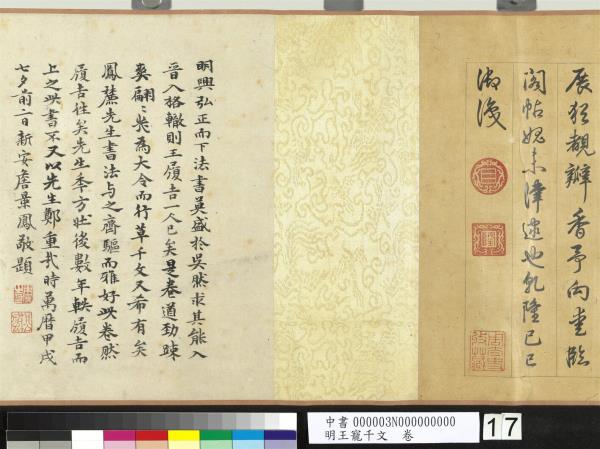 展狂覯辦香予向書臨
閣帖媿未津逮也乾隆己巳
御識
明興弘正而下法書莫盛於吳然求其能入
晉人格轍則王履吉一人已矣是卷遒勁疎
爽翩〻步為大令而行草千文又希有矣
鳳麓先生書法与之齊驅而雅好此卷然
履吉往矣先生季方壯後數年軼履吉而
上之此書不又以先生鄭重哉時萬曆甲戌
七夕前二日新安詹景鳳敬題
中書 000003N000000000
明王寵千文 卷
17